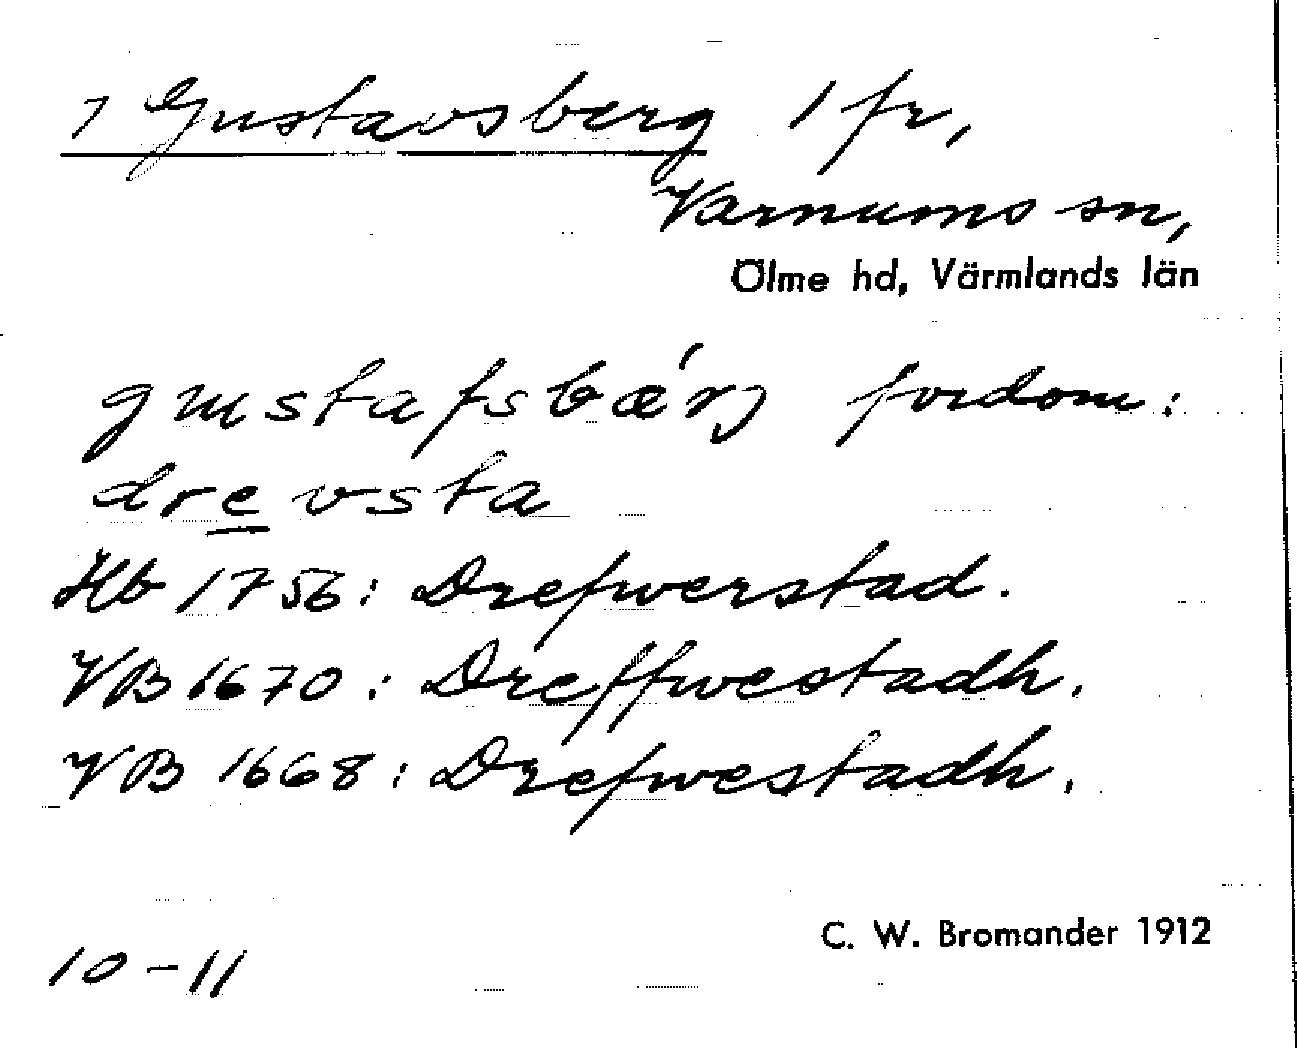 1 Gustavsberg 1 fr,
Varnums sn,
Ölme hd, Värmlands län
gustafsbærj fordom:
drevsta
Hb 1756: Drefwerstad.
VB 1670: Dreffwestadh.
VB 1668: Drefwestadh.
C. W. Bromander 1912
10-11